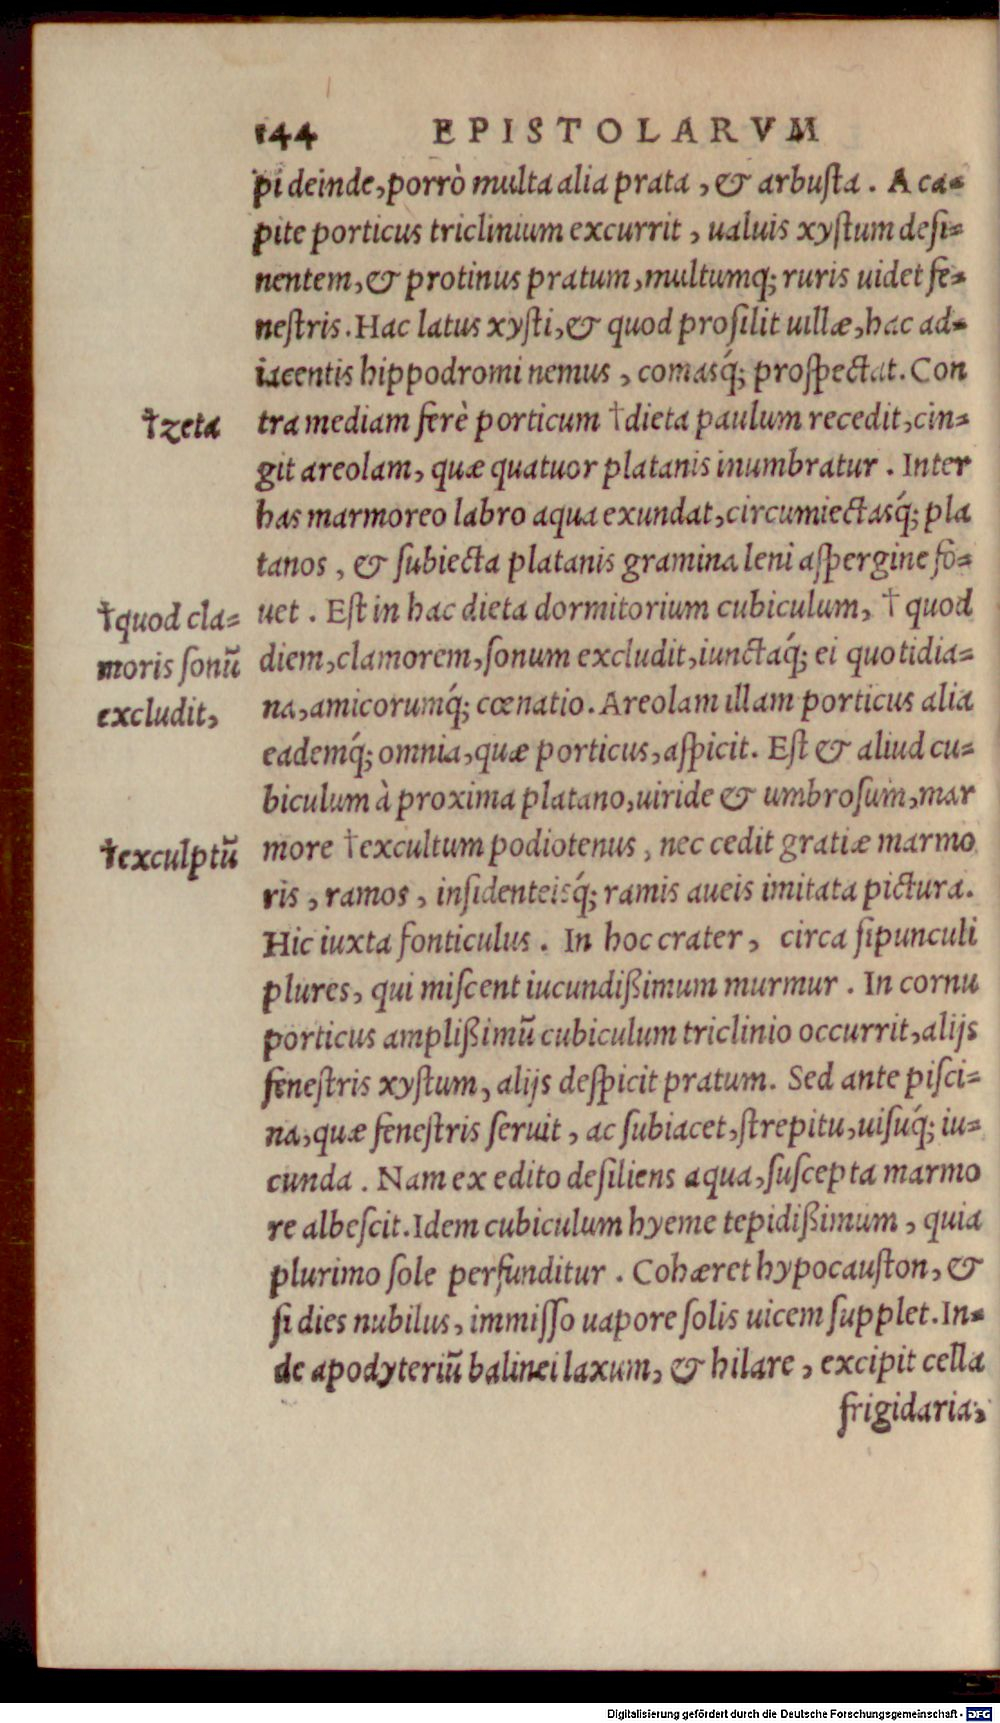 144 EPISTOLARVM
pi deinde, porrò multa alia prata, & arbusta. A ca-
pite porticus triclinium excurrit, ualuis xystum desi-
nentem, & protinus pratum, multumq́; ruris uidet fe-
nestris. Hac latus xysti, & quod prosilit uillæ, hac ad-
iacentis hippodromi nemus, comasq́; prospectat. Con
†zeta
tra mediam ferè porticum †dieta paulum recedit, cin-
git areolam, quæ quatuor platanis inumbratur. Inter
has marmoreo labro aqua exundat, circumiectasq́; pla
tanos, & subiecta platanis gramina leni aspergine fo-
†quod cla-
moris sonũ
excludit,
uet. Est in hac dieta dormitorium cubiculum, † quod
diem, clamorem, sonum excludit, iunctaq́; ei quotidia-
na, amicorumq́; cœnatio. Areolam illam porticus alia
eademq́; omnia, quæ porticus, aspicit. Est & aliud cu-
biculum à proxima platano, uiride & umbrosum, mar
†exculptũ
more †excultum podiotenus, nec cedit gratiæ marmo
ris, ramos, insidenteisq́; ramis aueis imitata pictura.
Hic iuxta fonticulus. In hoc crater, circa sipunculi
plures, qui miscent iucundißimum murmur. In cornu
porticus amplißimũ cubiculum triclinio occurrit, alijs
fenestris xystum, alijs despicit pratum. Sed ante pisci-
na, quæ fenestris seruit, ac subiacet, strepitu, uisuq́; iu-
cunda. Nam ex edito desiliens aqua, suscepta marmo
re albescit. Idem cubiculum hyeme tepidißimum, quia
plurimo sole perfunditur. Cohæret hypocauston, &
si dies nubilus, immisso uapore solis uicem supplet. In-
de apodyteriũ balinei laxum, & hilare, excipit cella
frigidaria,
Digitalisierung gefördert durch die Deutsche Forschungsgemeinschaft - DFG